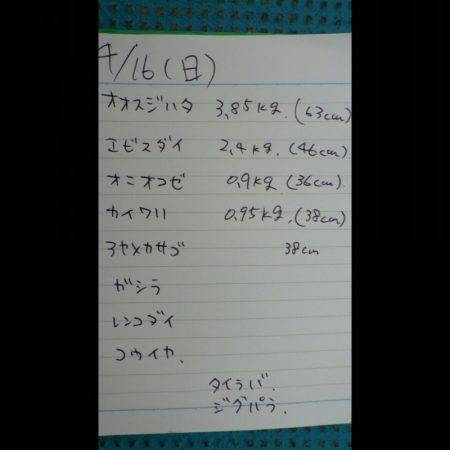 4/16(日)
オオスジハタ 3,85kg.(63cm)
エビスダイ 2,4kg.(46cm)
オニオコゼ 0,9kg(36cm).
カイワリ 0,95kg.(38cm)
アヤメカサゴ 38cm
ガシラ
レンコダイ
コウイカ.
タイラバ.
ジグパラ.